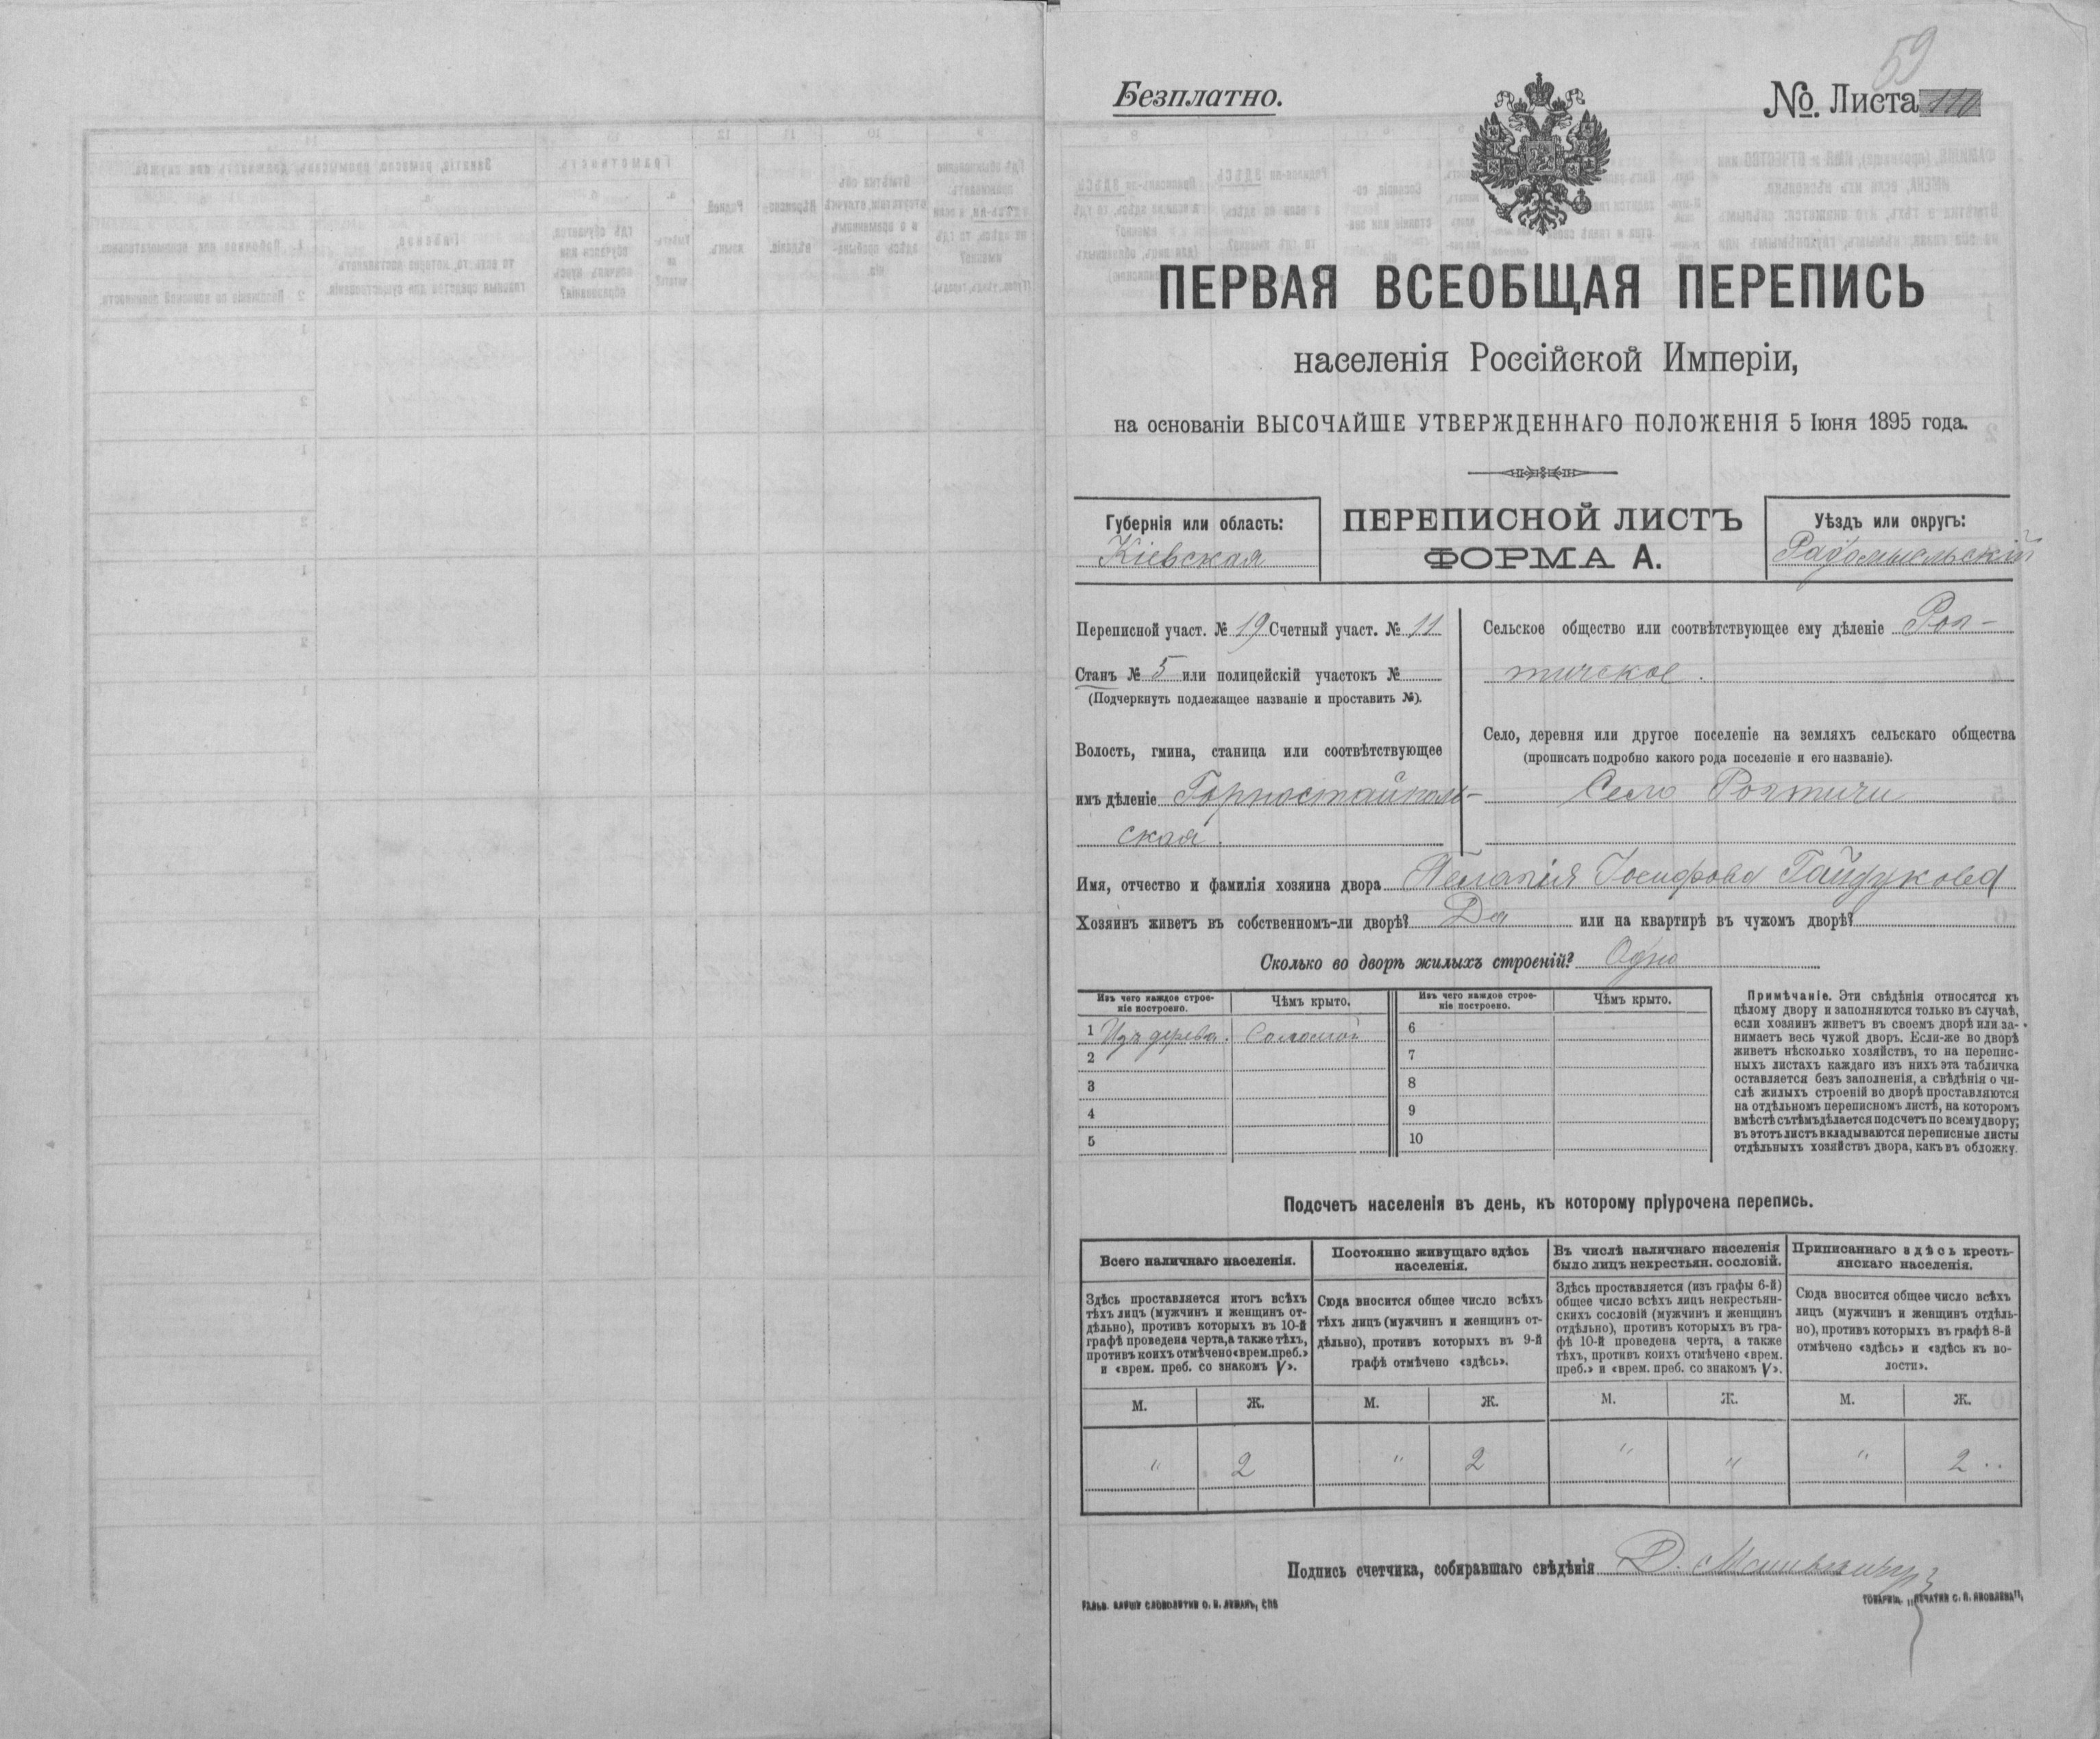 59
Безплатно.
№. Листа 110
ПЕРВАЯ ВСЕОБЩАЯ ПЕРЕПИСЬ
населенія Россійской Имперіи,
на основаніи ВЫСОЧАЙШЕ УТВЕРЖДЕННАГО ПОЛОЖЕНІЯ 5 Іюня 1895 года.
Губернія или область:
Кіевская
ПЕРЕПИСНОЙ ЛИСТЪ
ФОРМА А.
Уѣздъ или округъ:
Радомысльскій
Переписной участ. № 19 Счетный участ. № 11
Станъ № 5 или полицейскій участокъ №
(Подчеркнуть подлежащее названіе и проставить №).
Волость, гмина, станица или соотвѣтствующее
имъ дѣленіе Горностайполь-
ская.
Сельское общество или соотвѣтствующее ему дѣленіе Роп-
тичское.
Село, деревня или другое поселеніе на земляхъ сельскаго общества
(прописать подробно какого рода поселеніе и его названіе).
Село Роптичи
Имя, отчество и фамилія хозяина двора Пелагія Іосифова Гайдукова
Хозяинъ живетъ въ собственномъ-ли дворѣ? Да или на квартирѣ въ чужомъ дворѣ?
Сколько во дворѣ жилыхъ строеній? Одно
Изъ чего каждое строе-
ніе построено.
Чѣмъ крыто.
Изъ чего каждое строе-
ніе построено.
Чѣмъ крыто.
1 Изъ дерева. Соломой
2
3
4
5
6
7
8
9
10
Примѣчаніе. Эти свѣдѣнія относятся къ
цѣлому двору и заполняются только въ случаѣ,
если хозяинъ живетъ въ своемъ дворѣ или за-
нимаетъ весь чужой дворъ. Если-же во дворѣ
живетъ нѣсколько хозяйствъ, то на перепис-
ныхъ листахъ каждаго изъ нихъ эта табличка
оставляется безъ заполненія, а свѣдѣнія о чи-
слѣ жилыхъ строеній во дворѣ проставляются
на отдѣльномъ переписномъ листѣ, на которомъ
вмѣстѣ съ тѣмъ дѣлается подсчетъ по всему двору;
въ этотъ листъ вкладываются переписные листы
отдѣльныхъ хозяйствъ двора, какъ въ обложку.
Подсчетъ населенія въ день, къ которому пріурочена перепись.
Всего наличнаго населенія.
Здѣсь проставляется итогъ всѣхъ
тѣхъ лицъ (мужчинъ и женщинъ от-
дѣльно), противъ которыхъ въ 10-й
графѣ проведена черта, а также тѣхъ,
противъ коихъ отмѣчено «врем. преб.»
и «врем. преб. со знакомъ V».
Постоянно живущаго здѣсь
населенія.
Сюда вносится общее число всѣхъ
тѣхъ лицъ (мужчинъ и женщинъ от-
дѣльно), противъ которыхъ въ 9-й
графѣ отмѣчено «здѣсь».
Въ числѣ наличнаго населенія
было лицъ некрестьян. сословій.
Здѣсь проставляется (изъ графы 6-й)
общее число всѣхъ лицъ некрестьян-
скихъ сословій (мужчинъ и женщинъ
отдѣльно), противъ которыхъ въ гра-
фѣ 10-й проведена черта, а также
тѣхъ, противъ коихъ отмѣчено «врем.
преб.» и «врем. преб. со знакомъ V».
Приписаннаго здѣсь кресть-
янскаго населенія.
Сюда вносится общее число всѣхъ
лицъ (мужчинъ и женщинъ отдѣль-
но), противъ которыхъ въ графѣ 8-й
отмѣчено «здѣсь» и «здѣсь къ во-
лости».
М. Ж. М. Ж. М. Ж. М. Ж.
" 2 " 2 " " " 2
Подпись счетчика, собиравшаго свѣдѣнія Д.
ГАЛЬВ. КЛИШЕ СЛОВОЛИТНИ О. И. ЛЕМАНЪ, СПБ
ТОВАРИЩ. „ПЕЧАТНИ С. П. ЯКОВЛЕВА",